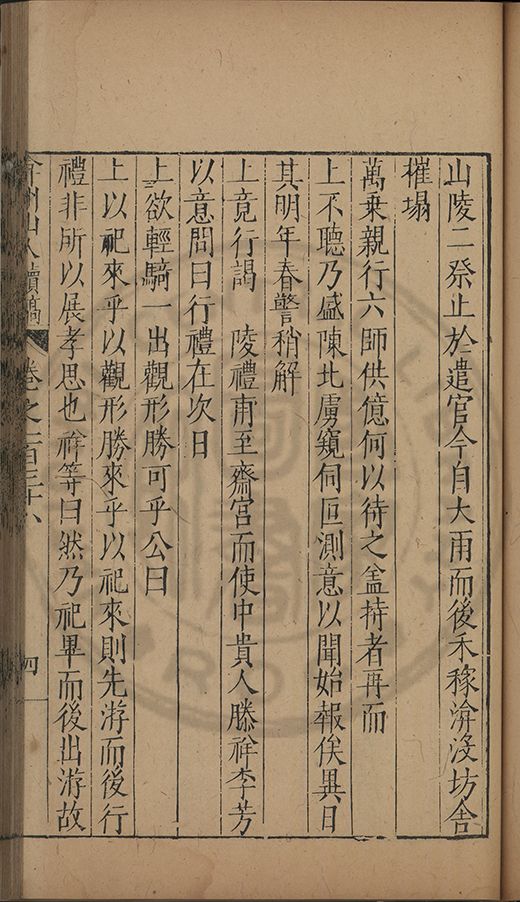 山陵二祭止於遣官今自大雨而後禾稼渰沒坊舍
摧塌
萬乗親行六師供億何以待之盖持者再而
上不聽乃盛陳北虜窺伺叵測意以聞始報俟異日
其明年春警稍解
上竟行謁　陵禮甫至齋宮而使中貴人滕祥李芳
以意問曰行禮在次日
上欲輕騎一出觀形勝可乎公曰
上以祀來乎以觀形勝來乎以祀來則先游而後行
禮非所以展孝思也祥等曰然乃祀畢而後出游故
弇州山人續稿　卷之一百三十八　四